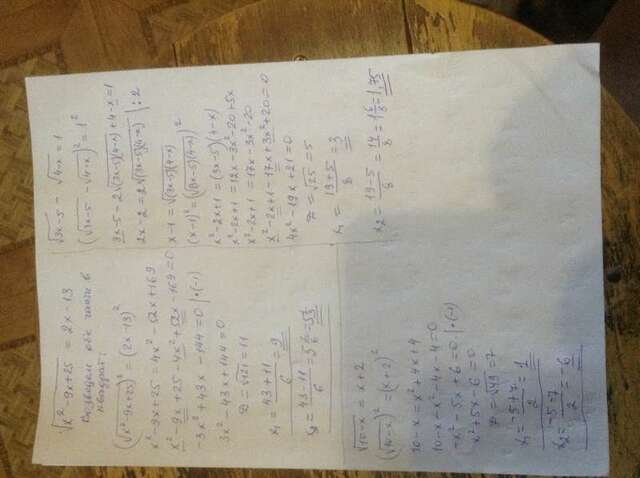 √(x² - 9x + 25) = 2x - 13
Возведем обе части в
квадрат:
(√(x² - 9x + 25))² = (2x - 13)²
x² - 9x + 25 = 4x² - 52x + 169
x² - 9x + 25 - 4x² + 52x - 169 = 0
-3x² + 43x - 144 = 0 | •(-1)
3x² - 43x + 144 = 0
D = √121 = 11
x₁ = (43 + 11)/6 = 9
x₂ = (43 - 11)/6 = 5 2/6 = 5 1/3
√(10 - x) = x + 2
(√(10 - x))² = (x + 2)²
10 - x = x² + 4x + 4
10 - x - x² - 4x - 4 = 0
-x² - 5x + 6 = 0 | •(-1)
x² + 5x - 6 = 0
D = √49 = 7
x₁ = (-5 + 7)/2 = 1
x₂ = (-5 - 7)/2 = -6
√(3x - 5) - √(4 - x) = 1
(√(3x - 5) - √(4 - x))² = 1²
3x - 5 - 2√((3x - 5)(4 - x)) + 4 - x = 1
2x - 2 = 2√((3x - 5)(4 - x)) | : 2
x - 1 = √((3x - 5)(4 - x))
(x - 1)² = (√((3x - 5)(4 - x)))²
x² - 2x + 1 = (3x - 5)(4 - x)
x² - 2x + 1 = 12x - 3x² - 20 + 5x
x² - 2x + 1 = 17x - 3x² - 20
x² - 2x + 1 - 17x + 3x² + 20 = 0
4x² - 19x + 21 = 0
D = √25 = 5
x₁ = (19 + 5)/8 = 3
x₂ = (19 - 5)/8 = 14/8 = 1 6/8 = 1,75